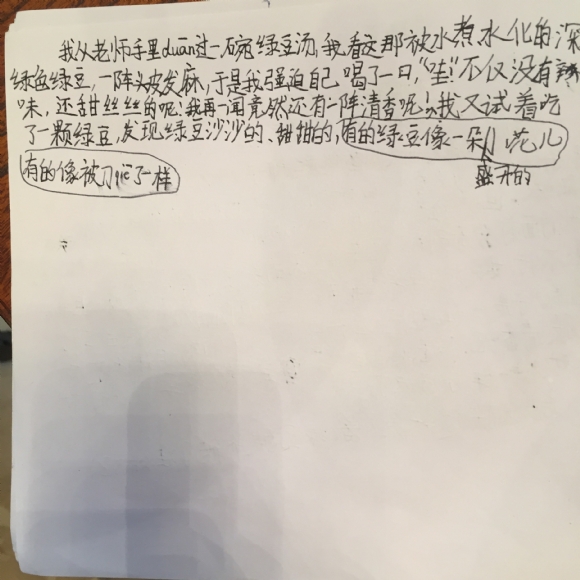 我从老师手里duān过一碗绿豆汤,我看这那被水煮水化的深
绿色绿豆,一阵头皮发麻,于是我强迫自己喝了一口,“哇!”不仅没有辣
味,还甜丝丝的呢。我再一闻竟然还有一阵清香呢!我又试着吃
了一颗绿豆,发现绿豆沙沙的、甜甜的,有的绿豆像一朵小花儿
盛开的
有的像被刀qiē了一样